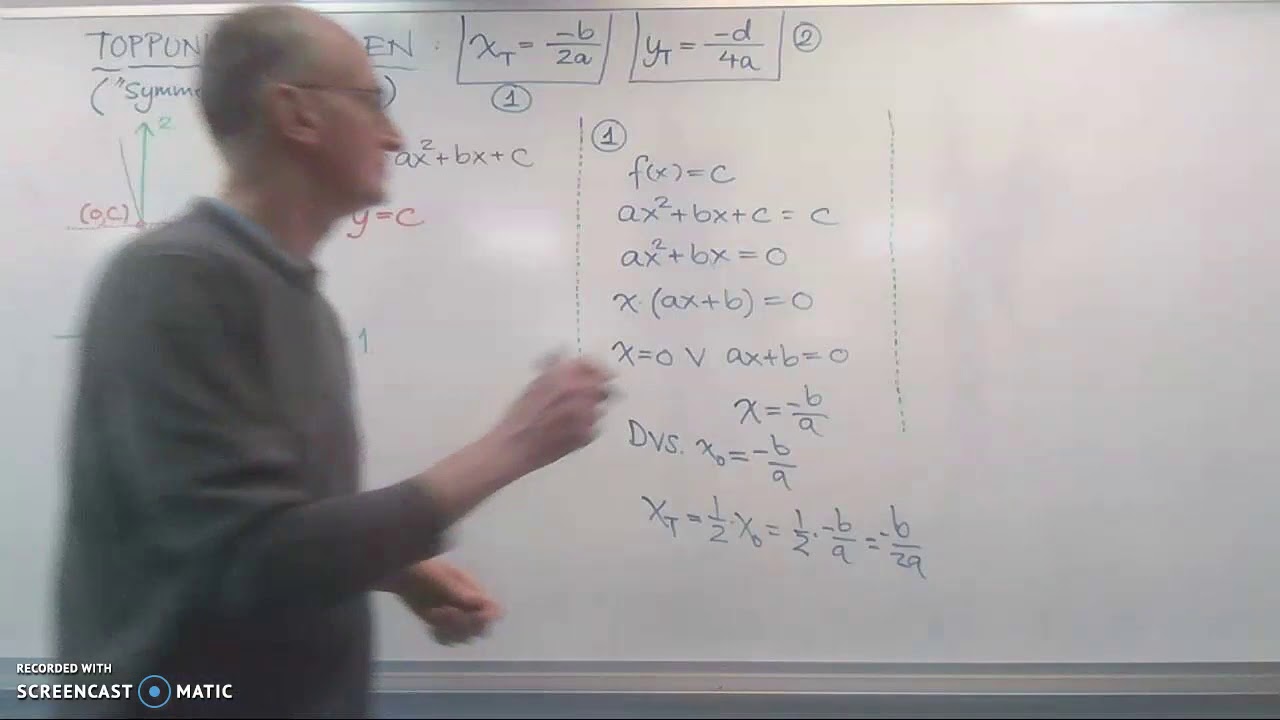 x_T = -b/2a   y_T = -d/4a ②
①
2
ax²+bx+c
(0,C)
y=c
1
①
f(x)=c
ax²+bx+c = c
ax²+bx = 0
x·(ax+b) = 0
x=0 ∨ ax+b=0
x = -b/a
Dvs. x₀ = -b/a
x_T = 1/2·x₀ = 1/2·-b/a = -b/2a
RECORDED WITH
SCREENCAST MATIC